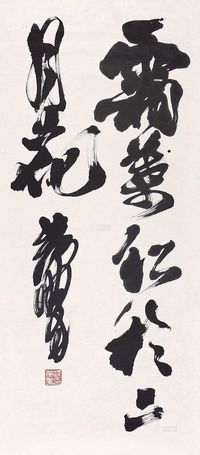 霜葉紅於二
月花